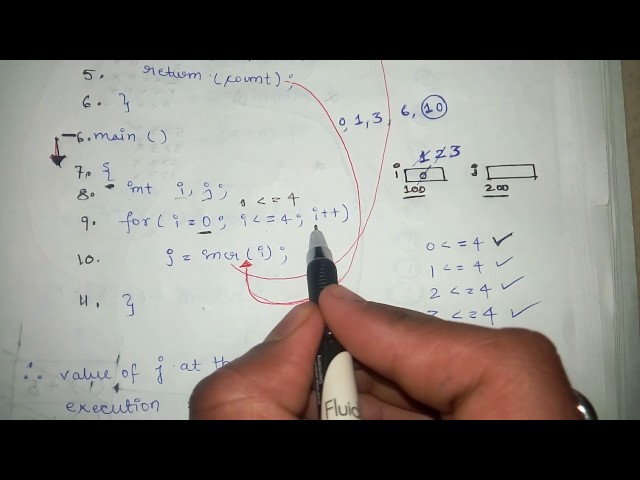 5. return (count);
6. }
0, 1, 3, 6, 10
6. main ()
7. {
8. int i, j;
i <= 4
9. for( i = 0; i <= 4; i++)
10. j = incr(i);
11. }
i 0 1 2 3
100
j
200
0 <= 4 ✓
1 <= 4 ✓
2 <= 4 ✓
3 <= 4 ✓
∴ value of j at the
execution
Fluid